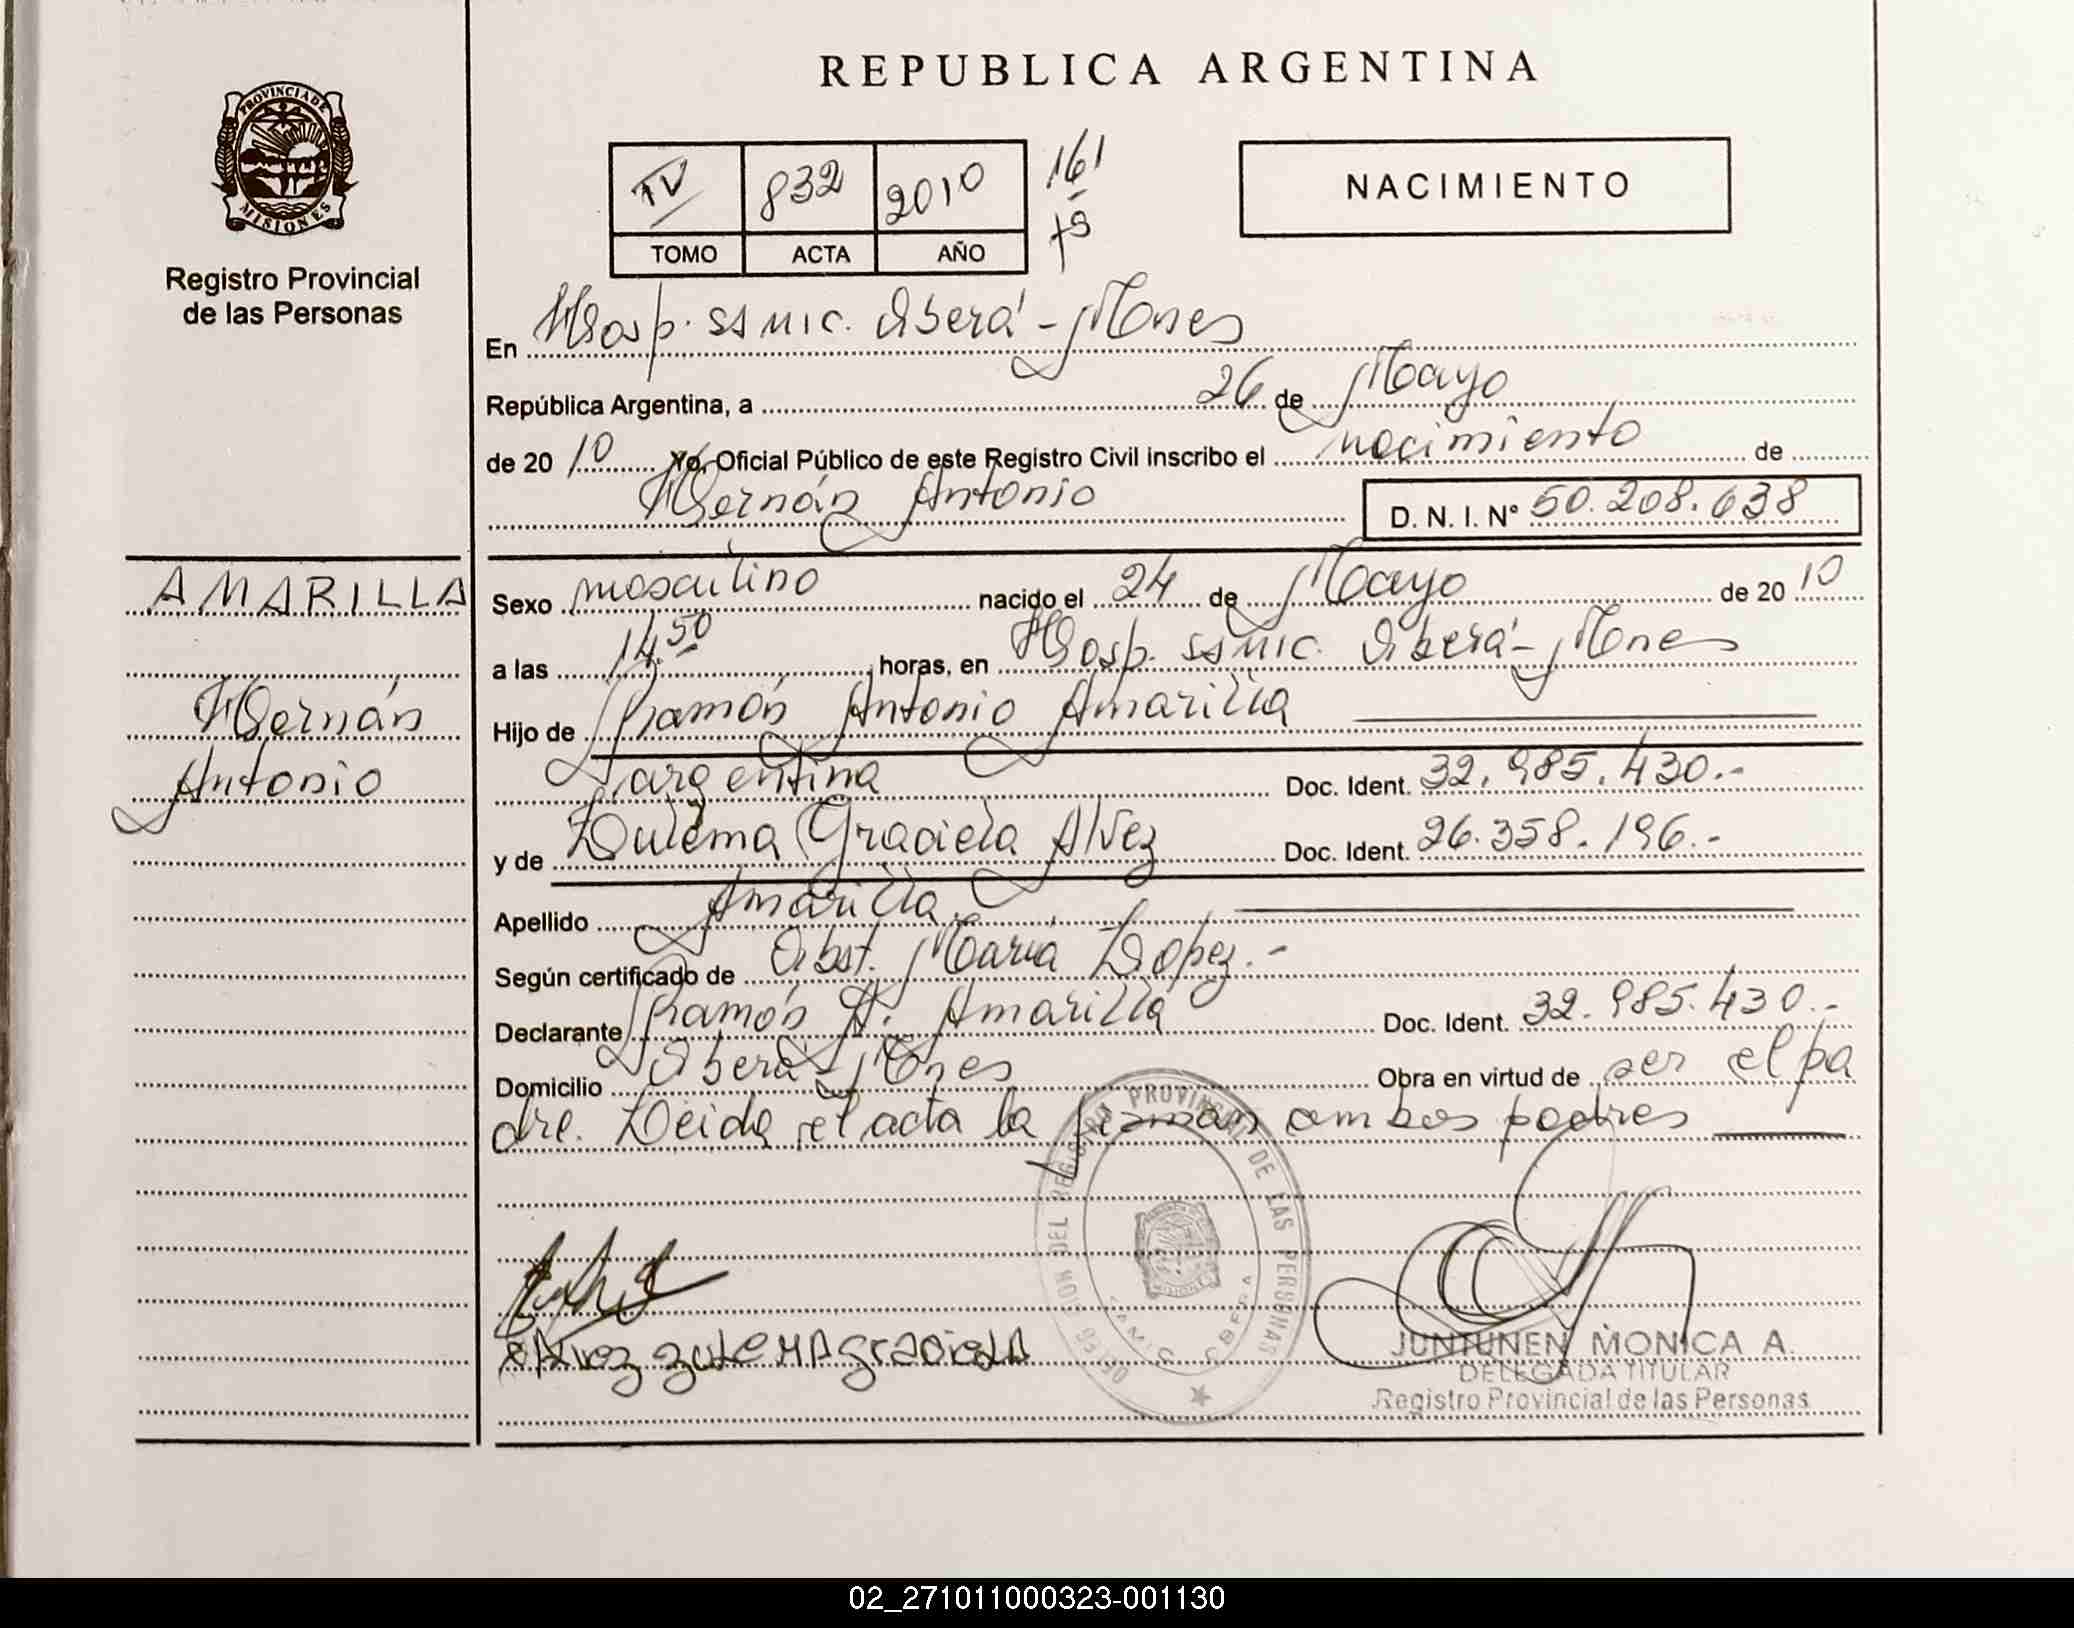 REPUBLICA ARGENTINA
PROVINCIA DE
MISIONES
Registro Provincial
de las Personas
IV 832 2010 161
TOMO ACTA AÑO
NACIMIENTO
En Hosp. SAMIC. Oberá - Mnes
República Argentina, a 26 de Mayo
de 20 10 Yo, Oficial Público de este Registro Civil inscribo el nacimiento de
Hernán Antonio D. N. I. N° 50.208.638
AMARILLA
Hernán
Antonio
Sexo masculino nacido el 24 de Mayo de 20 10
a las 14.50 horas, en Hosp. SAMIC. Oberá - Mnes
Hijo de Ramón Antonio Amarilla
argentina Doc. Ident. 32.985.430.-
y de Zulema Graciela Alvez Doc. Ident. 26.358.196.-
Apellido Amarilla
Según certificado de Obst. María Lopez.-
Declarante Ramón A. Amarilla Doc. Ident. 32.985.430.-
Domicilio Oberá - Mnes Obra en virtud de ser el pa
dre. Leida el acta la firman ambos padres
Alvez zuleMA gracielA
DELEGACION DEL REGISTRO PROVINCIAL DE LAS PERSONAS
JUNTUNEN MONICA A.
DELEGADA TITULAR
Registro Provincial de las Personas
02_271011000323-001130